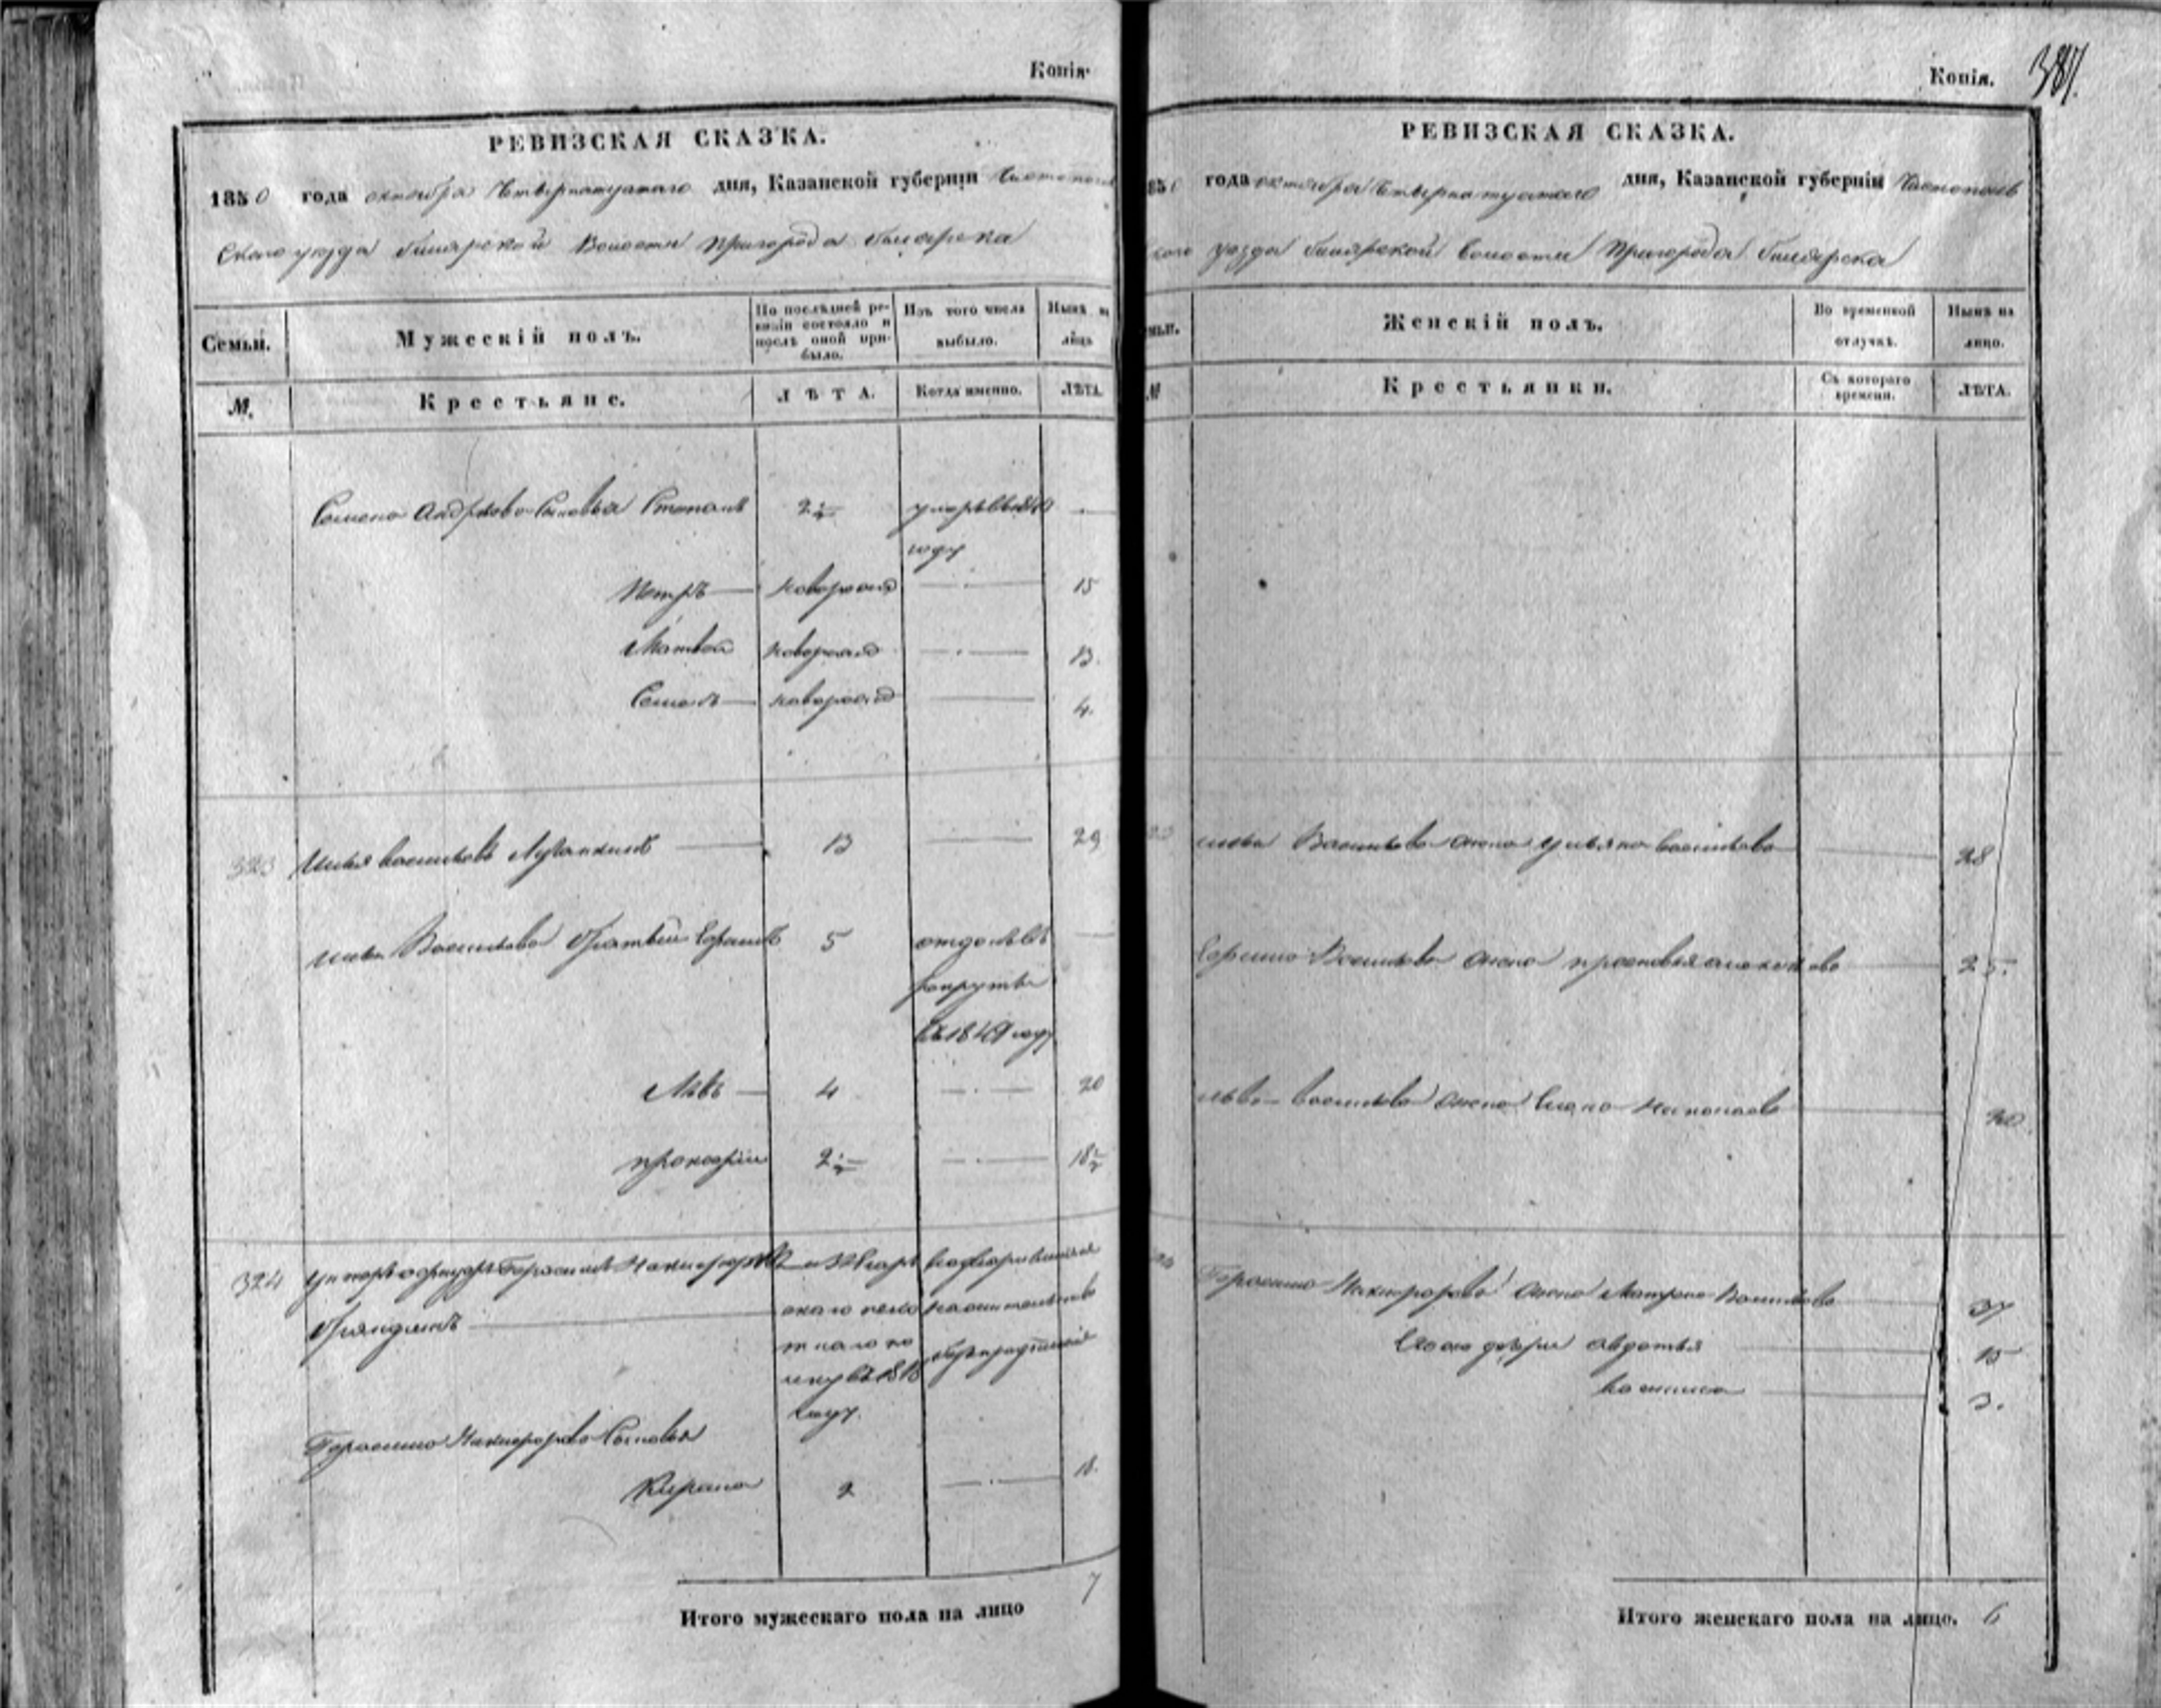 Копія.
РЕВИЗСКАЯ СКАЗКА.
1850 года октября Четырнатцатаго дня, Казанской губерніи Чистополь
скаго уезда Билярской Волости Пригорода Билярска
Семьи.
Мужескій полъ.
По послѣдней ре-
визіи состояло и
послѣ оной при-
было.
Изъ того числа
выбыло.
Нынѣ на
лицо
М.
Крестьяне.
ЛѢТА.
Когда именно.
ЛѢТА.
Семена Андреева Сыновья Степанъ 2½ умеръ въ
году
Петръ новорожд 15
Матвей новорожд 13.
Семенъ новорожд 4.
323 Илья васильевъ 13 29
Ильи Васильева братьи Ефимъ 5 отданъ въ
рекруты
въ 1849 году
Левъ 4 20
прокофій 2½ 18½
324 Унтеръ офицеръ Герасимъ Никифоровъ
году.
Герасима Никифорова Сыновья
Кирила 2 18.
Итого мужескаго пола на лицо 7
Копія. 387.
РЕВИЗСКАЯ СКАЗКА.
1850 года октября Четырнатцатаго дня, Казанской губерніи Чистополь
скаго уезда Билярской Волости Пригорода Билярска
Семьи.
Женскій полъ.
Во временной
отлучкѣ.
Нынѣ на
лицо.
М
Крестьянки.
Съ котораго
времени.
ЛѢТА.
Ильи Васильева жена ульяна васильева 28
Ефима Васильева жена прасковья 25.
Льва васильева жена Елена 20.
Герасима Никифорова жена Матрена Васильева 37
Его дочери авдотья 15
василиса 3.
Итого женскаго пола на лицо. 6